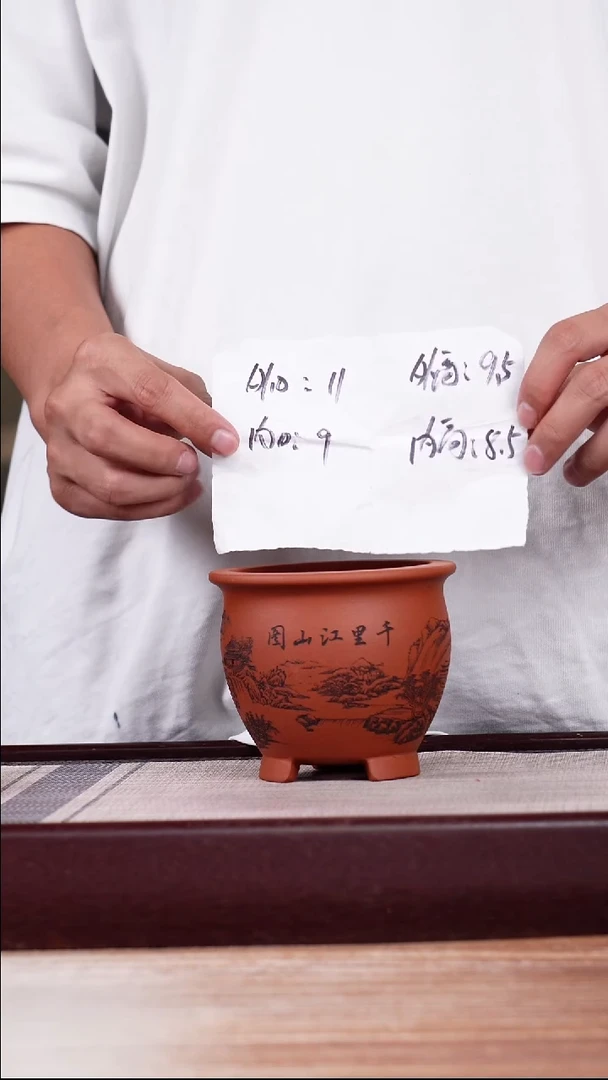 外口:11 外高:9.5
内口:9 内高:8.5
千里江山图